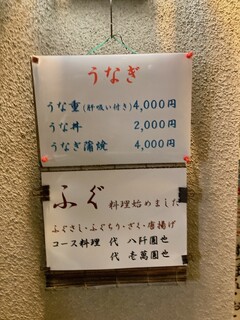 うなぎ
うな重(肝吸い付き)4,000円
うな丼 2,000円
うなぎ蒲焼 4,000円
ふぐ 料理始めました
ふぐさし・ふぐちり・ざく・唐揚げ
コース料理 代 八阡圓也
代 壱萬圓也